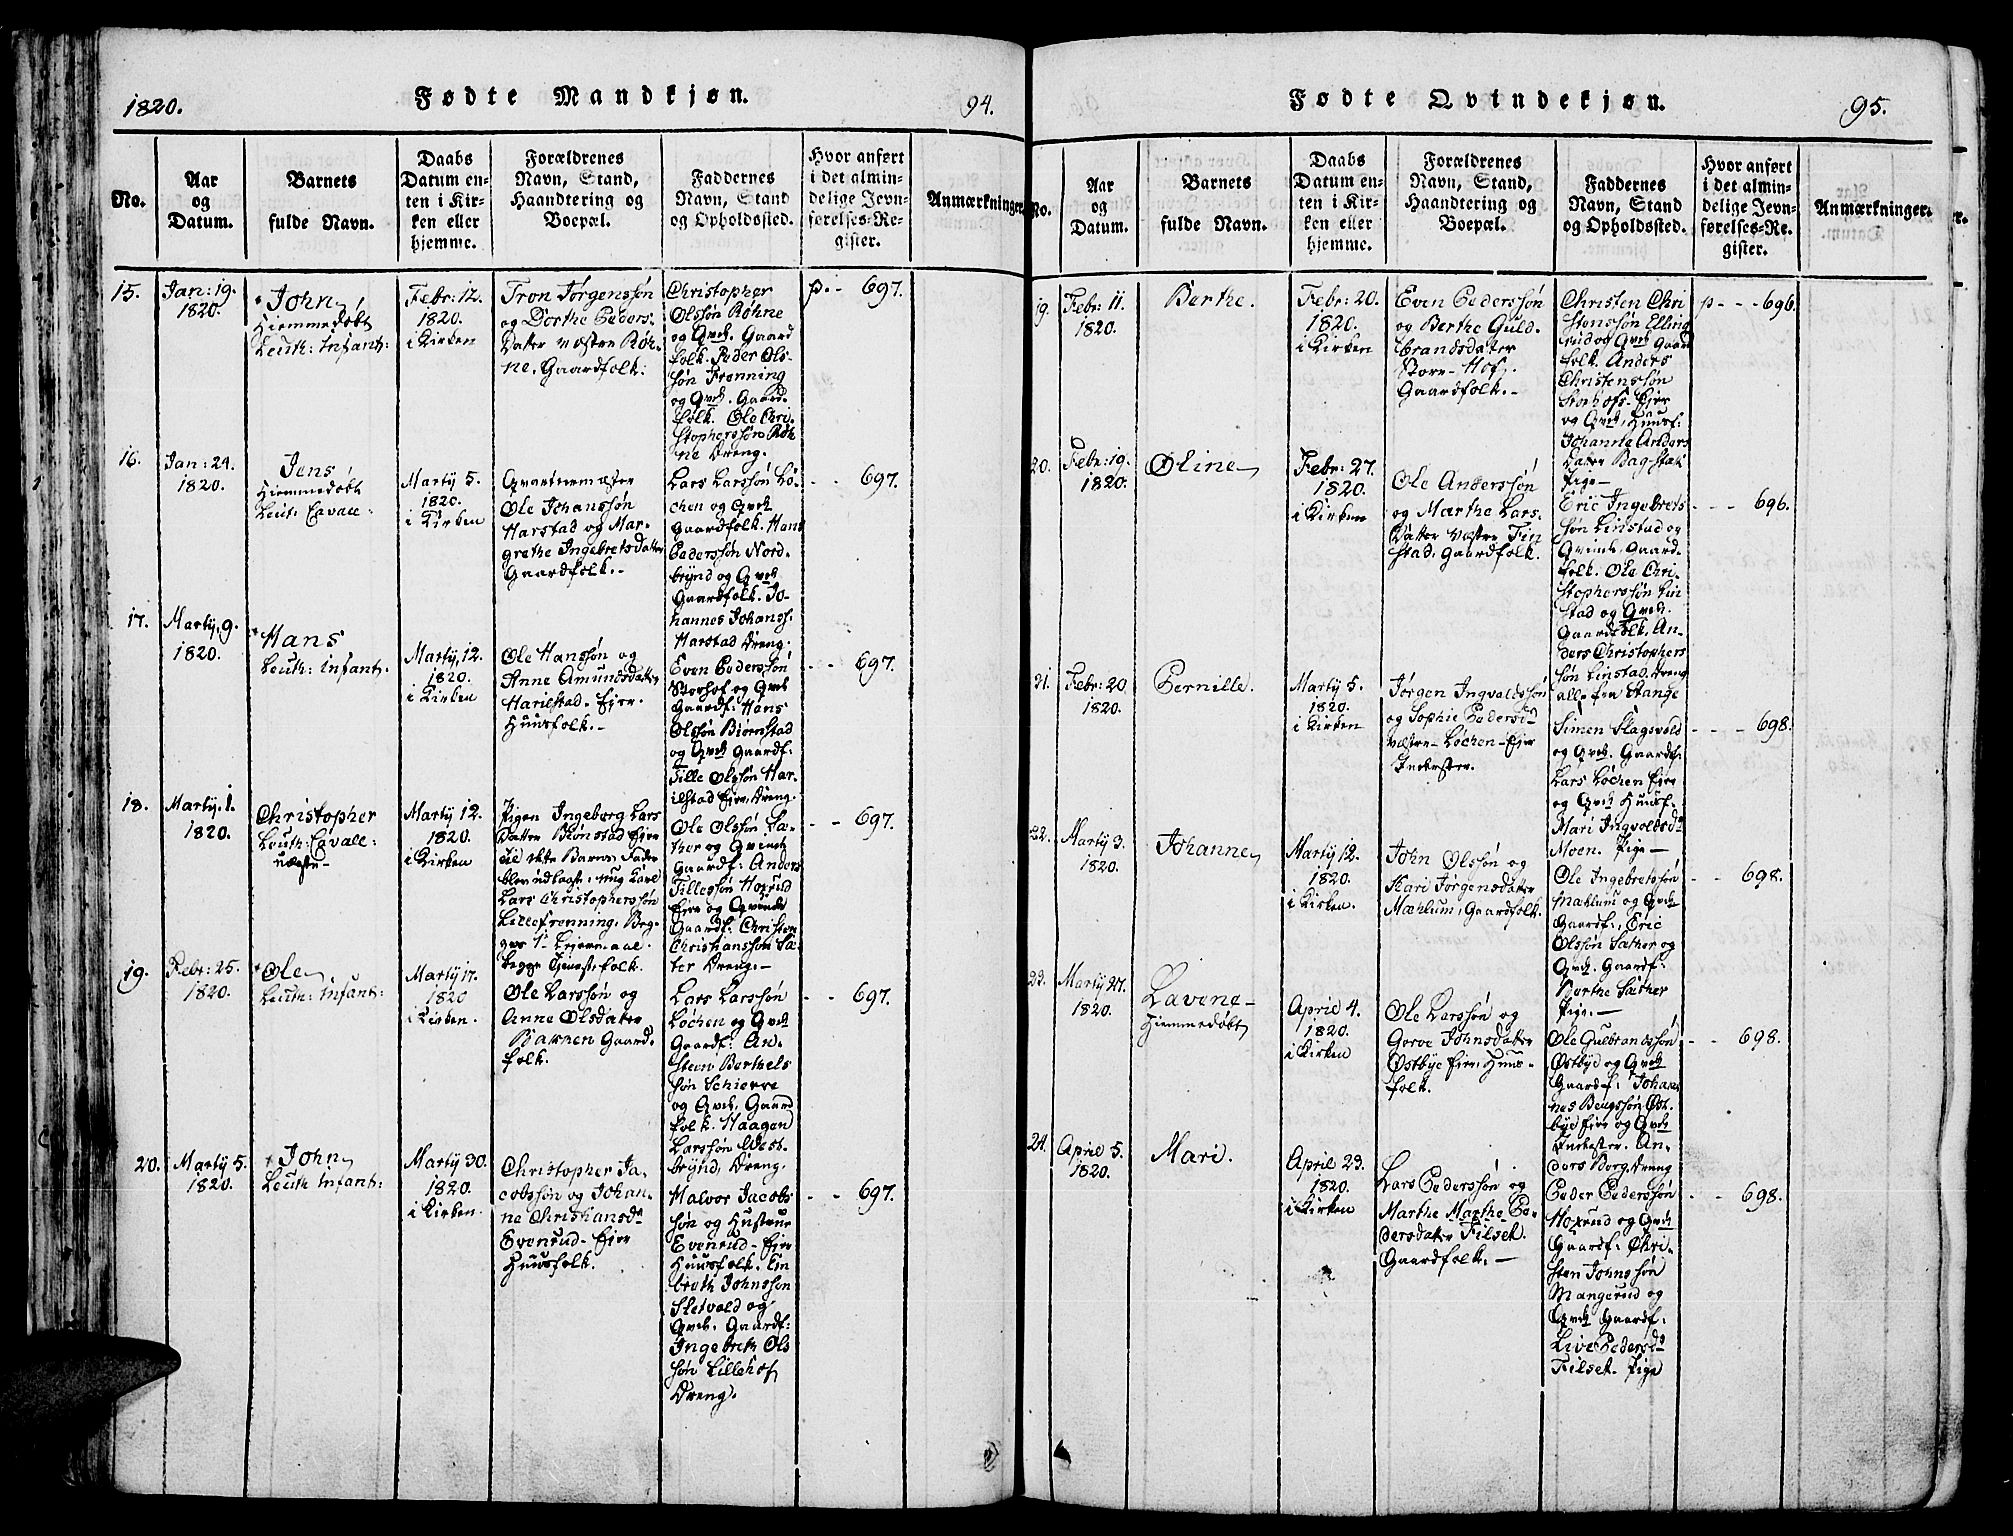 1820.
Fødte Mandkjøn.
94.
No.
Aar
og
Datum.
Barnets
fulde Navn.
Daabs
Datum en-
ten i Kir-
ken eller
hjemme.
Forældrenes
Navn, Stand,
Haandtering og
Boepæl.
Faddernes
Navn, Stand
og Opholdssted.
Hvor anført
i det almin-
delige Jevn-
førelses-Re-
gister.
Anmærkninger
15.
Jan: 19.
1820.
John
Hiemmedøbt
Leuth: Infant:
Febr: 12.
1820.
i Kirken
Tron Jørgenssøn
og Dorthe Peders-
Datter Væstre Røh-
ne. Gaardfolk.
Christopher
Olssøn Røhne
og Qvd. Gaard
folk. Peder Ols-
søn Frønning
og Qvd. Gaard-
folk. Ole Chri-
stopherssøn Røh
ne Dreng.
p. - 697.
16.
Jan: 24.
1820.
Jens
Hiemmedøbt
Leut: Cavall:
Marty 5.
1820.
i Kirken
Qvarteermæster
Ole Johanssøn
Harstad og Mar-
grethe Ingebretsdatter
Gaardfolk.-
Lars Larssøn Lö-
chen og Qvd.
Gaardfolk. Hans
Pederssøn Nord-
brynd og Qvd.
Gaardfolk. Jo-
hannes Johanss.
Harstad Dreng.
- - 697.
17.
Marty. 9.
1820.
Hans
Leuth: Infant.
Marty. 12.
1820.
i Kirken
Ole Hanssøn og
Anne Amundsdatter
Harilstad. Eier
Huusfolk.-
Even Pederssøn
Storhof og Qvd
Gaardf: Hans
Olssøn Biørnstad
og Qvd Gaardf.
Tille Olssøn Har-
ilstad Eier, Dreng.
- - 697.
18.
Marty. 1.
1820.
Christopher
Leuth: Cavall:
uægte-
Marty 12.
1820.
i Kirken
Pigen Ingeborg Lars
Datter Biønstad Eier
til dette Barns Fader
blev udlagt: ung Karl
Lars Christopherssøn
Lillefrønning. Beg-
ges 1te Leiermaal.
begge Tienestefolk.
Ole Olssøn Sæ-
ther og Qvinde
Gaardf: Anders
Tillessøn Hoxrud
Eier og Qvinde
Gaardf: Christen
Christianssøn Sæ-
ter Dreng.-
- - 697.
19.
Febr: 25.
1820.
Ole
Leuth: Infant:
Marty 17.
1820
i Kirken.
Ole Larssøn og
Anne Olsdatter
Bakken Gaard-
folk.
Lars Larssøn
Løchen og Qvd
Gaardf: An-
steen Berthels
søn Schierre
og Qvd. Gaard
folk. Haagen
Larssøn West-
brynd, Dreng.
- - 697.
20.
Marty 5.
1820.
John
Leuth Infant:
Marty 30.
1820.
i Kirken.
Christopher Ja-
cobssøn og Johan-
ne Christiansd
Evenrud- Eier
Huusfolk.
Halvor Jacobs
søn og Hustrue
Evenrud- Eier
Huusfolk. En
breth Johnssøn
Sletvold og
Qvd. Gaardf:
Ingebreth Ols
søn Lillehof
Dreng.
- - 697.
Fødte Qvindekjøn.
95.
No.
Aar
og
Datum.
Barnets
fulde Navn.
Daabs
Datum en-
ten i Kir-
ken eller
hjemme.
Forældrenes
Navn, Stand,
Haandtering og
Boepæl.
Faddernes
Navn, Stand
og Opholdssted.
Hvor anført
i det almin-
delige Jevn-
førelses-Re-
gister.
Anmærkninger.
19.
Febr: 11.
1820.
Berthe.
Febr: 20.
1820.
i Kirken
Even Pederssøn
og Berthe Guld-
brandsdatter
Store- Hof.
Gaardfolk.-
Christen Chri
stenssøn Elling
rud og Qvd Gaard
folk. Anders
Christenssøn
Storhofs- Eier
og Qvd. Huusf:
Johanne Anders
Datter Bagstad
Pige-
p - - - 696.
20.
Febr: 19.
1820.
Oline
Febr: 27.
1820.
i Kirken
Ole Anderssøn
og Marthe Lars-
Datter Væstre Fin
stad. Gaardfolk.
Eric Ingebrets
søn Linstad og
Qvinde. Gaard-
folk. Ole Chri-
stopherssøn Lin
stad og Qvd.
Gaardfolk. An-
ders Christophers
søn Linstad, Dreng
alle fra Stange
- - - 696.
21.
Febr: 20.
1820.
Pernille.
Marty 5.
1820.
i Kirken
Jørgen Ingvoldssøn
og Sophie Pedersd
Væstre- Løchen- Eier
Inderster.
Simen Slagsvold
og Qvd. Gaardf.
Lars Løchen Eier
og Qvd Huusf.
Mari Ingvoldsd
Moen. Pige-
- - - 698.
22.
Marty 3.
1820.
Johanne
Marty 12.
1820.
i Kirken.
John Olssøn og
Kari Jørgensdatter
Mæhlum, Gaardfolk.
Ole Ingebretssøn
Mæhlum og Qvd.
Gaardf:, Eric
Olssøn Sæther og
Qvd. Gaardf:
Berthe Sæther
Pige.-
- - 698.
23.
Marty 27.
1820.
Lavene-
Hiemmedøbt
April 4.
1820.
i Kirken
Ole Larssøn og
Gorve Johnsdatter
Østbye Eier. Huus-
folk.
Ole Gulbrandssøn
Østbyd og Qvd
Gaardf: Johan
nes Bengssøn Øst-
bye Eier og Qvd
Inderster. An-
ders Borg. Dreng
- - 698.
24.
April 5.
1820.
Mari.
April 23.
1820.
i Kirken
Lars Pederssøn og
Marthe Marthe Pe-
dersdatter Filset.
Gaardfolk.-
Peder Pederssøn
Hoxrud og Qvd
Gaardf: Chri-
sten Johnssøn
Mangerud og
Qvd Gaardf:
Live Pedersd
Filset. Pige
- - 698.